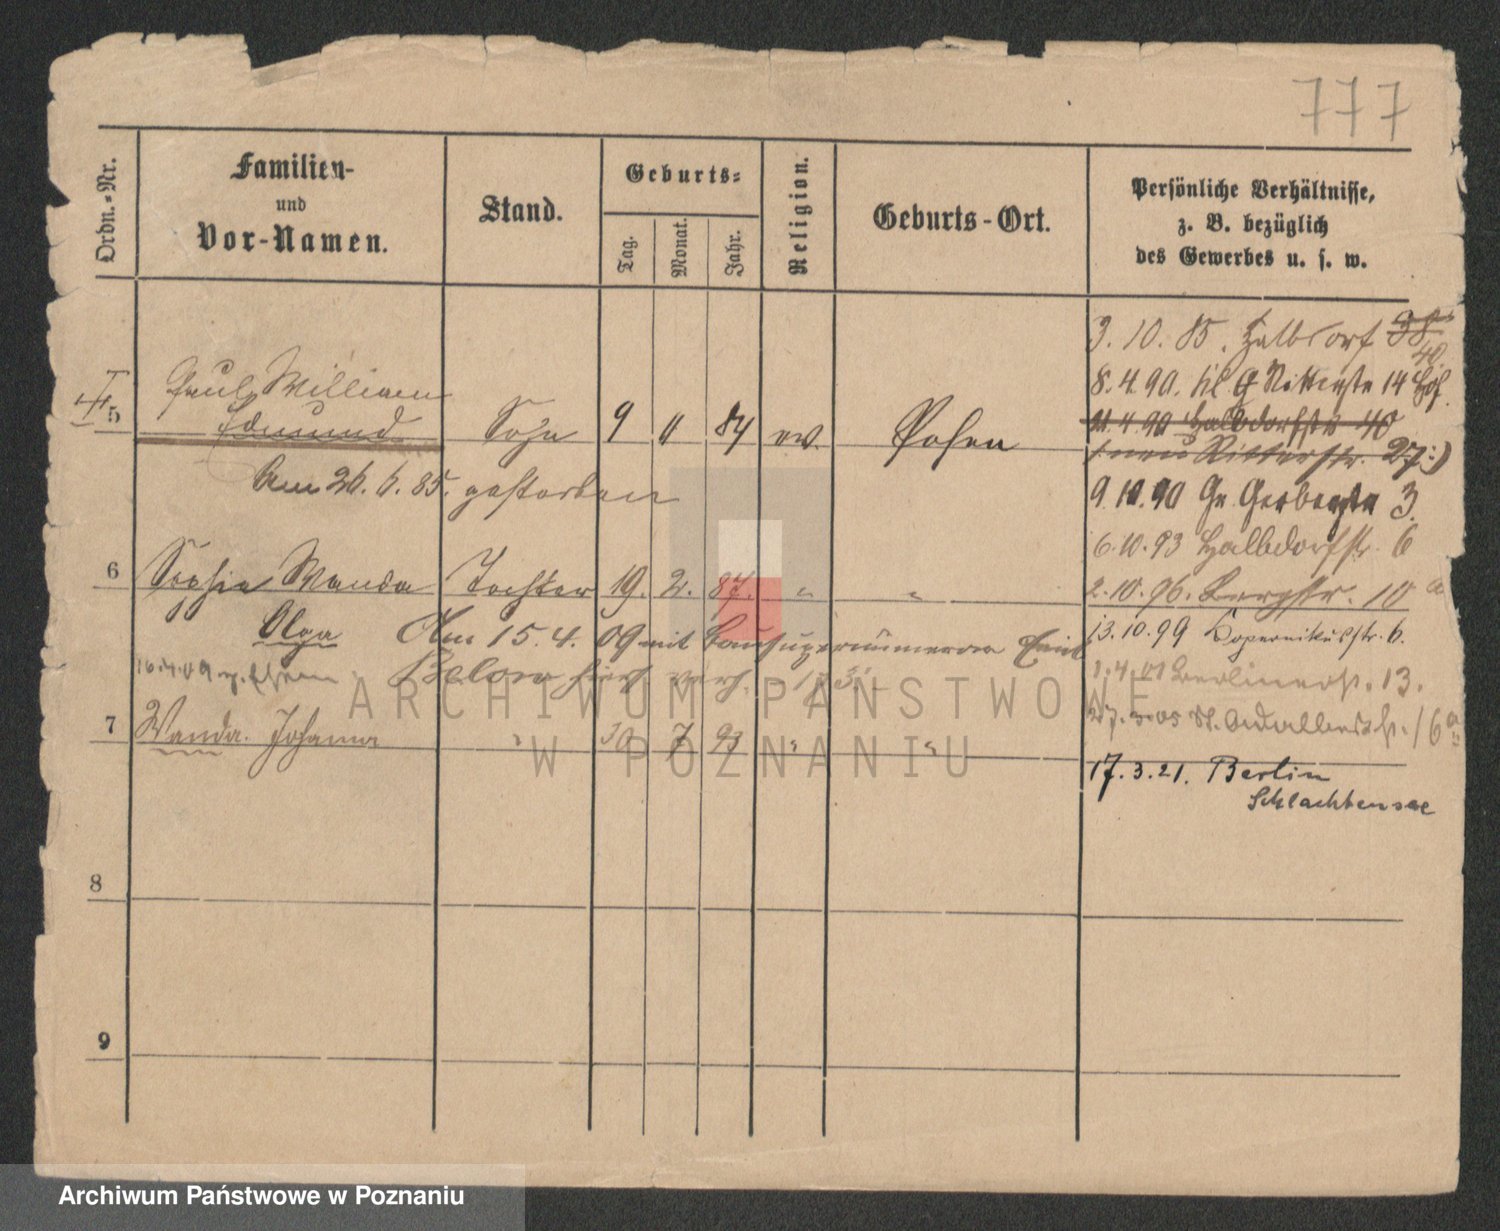 777
Ordn.-Nr.
Familien-
und
Vor-Namen.
Stand.
Geburts-
Tag.
Monat.
Jahr.
Religion.
Geburts-Ort.
Persönliche Verhältnisse,
z. B. bezüglich
des Gewerbes u. s. w.
5
Paul William
Edmund
Sohn
9
11
84
ev.
Posen
Am 26. 6. 85. gestorben
6
Sophie Wanda
Olga
Tochter
19.
2.
87.
"
"
Am 15. 4. 09 mit Bausupernumerar
Below hier verh.
16.4.09
7
Wanda Johanna
"
30
7
93
"
"
8
9
3. 10. 85. Halbdorf 38
40.
8. 4. 90. Kl. Ritterstr 14 Hof.
11 4 90 Halbdorfstr 40
(neu Ritterstr. 27:)
9 10. 90 Gr. Gerberstr 3.
6. 10. 93 Halbdorfstr. 6
2. 10. 96. Bergstr. 10 a
13. 10. 99 Kopernikusstr. 6.
1. 4. 01 Berlinerstr. 13.
27. 3. 05 St. Adalbertstr. 16 a
17. 3. 21. Berlin
Schlachtensee
ARCHIWUM PAŃSTWOWE
W POZNANIU
Archiwum Państwowe w Poznaniu